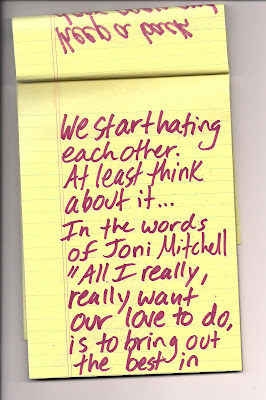 Keep a back
We start hating
each other.
At least think
about it...
In the words
of Joni Mitchell
"All I really,
really want
our love to do,
is to bring out
the best in